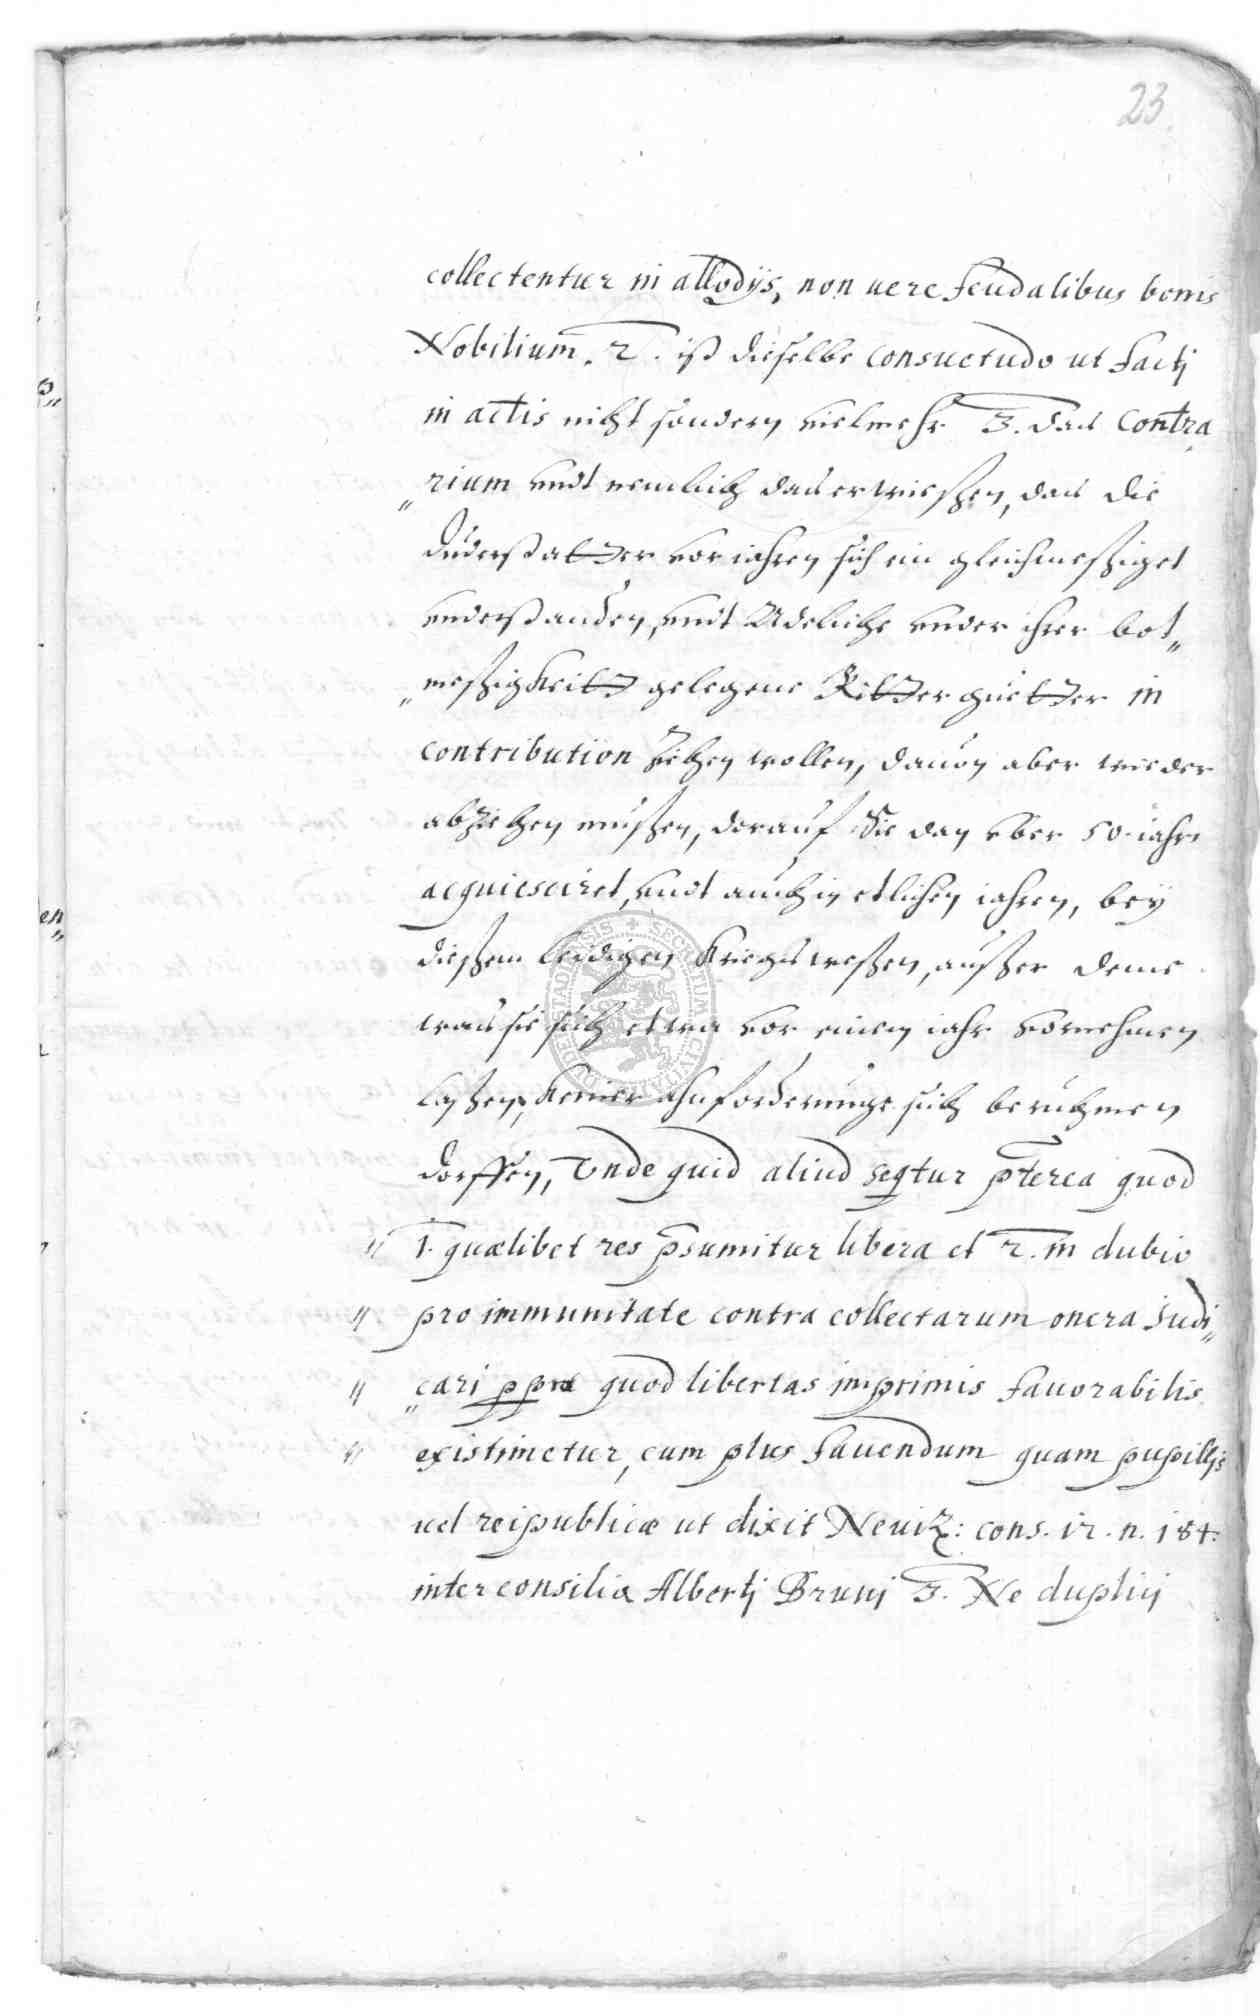 23
collectentur in allodijs, non uere feudalibus bonis
Nobilium. 2. ist dieselbe consuetudo ut facti
in actis nicht sondern vielmehr 3. das contra
rium vndt nemlich das erwießen, das die
Duderstatter vor iahren sich ein gleichmeßiges
vnderstanden, vndt Adeliche vnder ihrer bot„
„meßigkeitt gelegene Ritterguetter in
contribution ziehen wollen, dauon aber wieder
abziehen mußen, darauf Sie dan vber 50. iahr
acquiesciret, vndt auch in etlichen iahren, bey
dießem leidigen Kriegswesßen, außer deme
was sie sich etwa vor einem iahr vornehmen
laßen, keiner ahnforderunge sich beruhmen
dorffen, Unde quid aliud seqtur pterea quod
1. quælibet res psumitur libera et 2. in dubio
pro immunitate contra collectarum onera Judi„
„cari quod libertas imprimis fauorabilis
existimetur, cum plus fauendum quam pupillis
uel reipublicæ ut dixit Neuiz: cons. 12. n. 184.
inter consilia Alberti Bruni 3. Ne duplici
en„
SECRETUM CIVITATIS DUDERSTADIENSIS